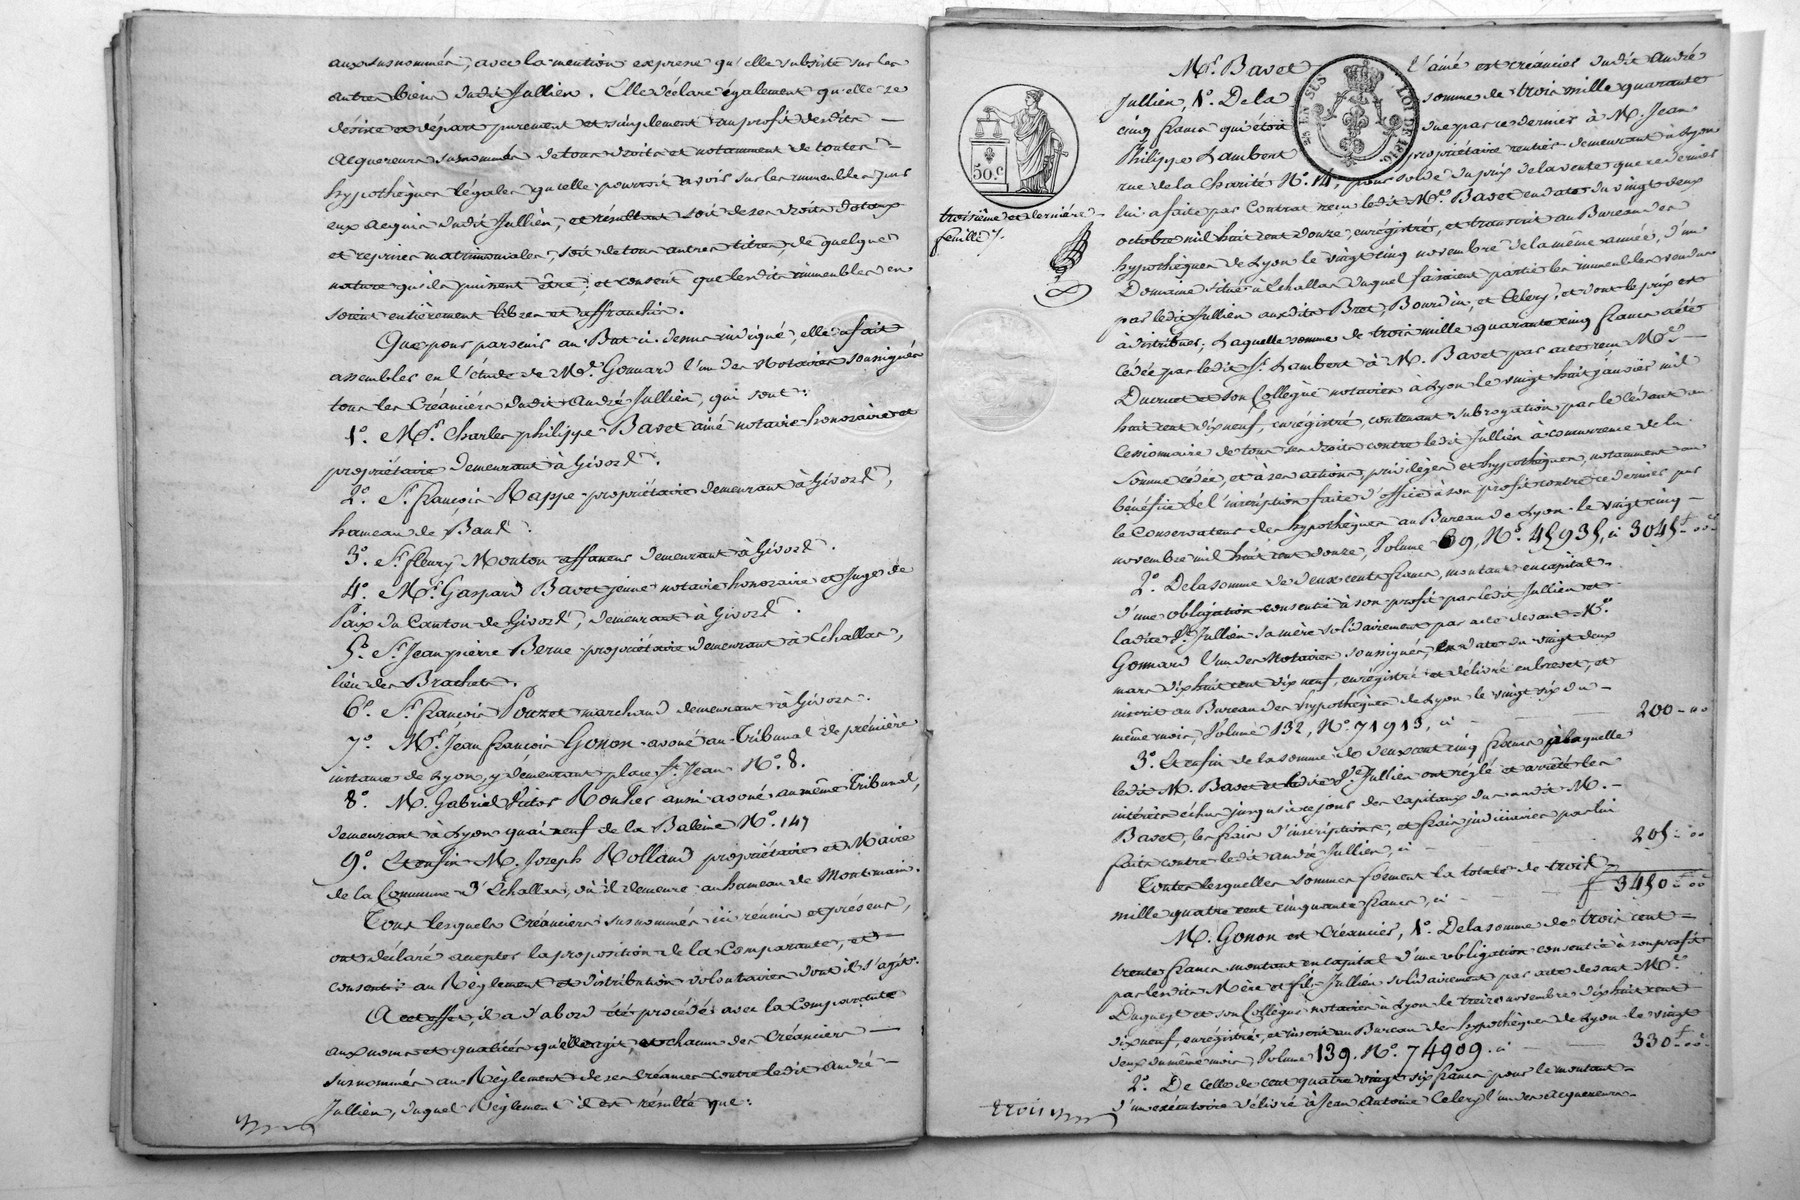 aux susnommés, avec la mention expresse qu'elle subsiste sur les
autres biens dudit Jullien. Elle déclare également qu'elle se
désiste et départ purement et simplement au profit desdits
acquereurs susnommés de tous droits et notamment de toutes
hypothèques légales qu'elle pourroit avoir sur les immeubles par
eux acquis dudit Jullien, et résultant soit de ses droits dotaux
et reprises matrimoniales, soit de tous autres titres, de quelque
nature qu'ils puissent être, et consent que lesdits immeubles en
soient entièrement libres et affranchis.
Que pour parvenir au But ci-dessus indiqué, elle a fait
assembler en l'étude de Me. Gonnard l'un des Notaires soussignés
tous les Créanciers dudit André Jullien, qui sont:
1°. Mr. Charles philippe Bavet aîné notaire honoraire et
propriétaire demeurant à Givors.
2°. Sr. françois Rappe propriétaire demeurant à Givors,
hameau de Bans.
3°. Sr. fleury Mouton affaneur demeurant à Givors.
4°. Mr. Gaspard Bavet jeune notaire honoraire et Juge de
Paix du Canton de Givors, demeurant à Givors.
5°. Sr. Jean pierre Berne propriétaire demeurant à Echallas,
lieu des Brachets.
6°. Sr. françois Pouzet marchand demeurant à Givors.
7°. Mr. Jean françois Gonon avoué au Tribunal de première
instance de Lyon, y demeurant place St. Jean N°. 8.
8°. M. Gabriel Victor Rouher aussi avoué au même Tribunal,
demeurant à Lyon quai neuf de la Baleine N°. 147
9°. Et enfin M. Joseph Rolland propriétaire et Maire
de la Commune d'Echallas, où il demeure au hameau de Montmain.
Tous lesquels Créanciers susnommés ici réunis et présens,
ont déclaré accepter la proposition de la Comparante, et
consentir au Règlement et distribution volontaires dont il s'agit.
A cet effet, il a d'abord été procédé avec la Comparante
aux noms et qualités qu'elle agit, et chacun des Créanciers
susnommés au Règlement de ses créances contre ledit André
Jullien, duquel Règlement il est résulté que:
50.c
25 EN SUS
LOI DE 1816.
troisième et dernière
feuille /.
Mr. Bavet l'aîné est créancier dudit André
Jullien, 1°. De la somme de trois mille quarante
cinq francs qui étoit due par ce dernier à M. Jean
Philippe Lambert propriétaire rentier demeurant à Lyon
rue de la Charité N°. 14, pour solde du prix de la vente que ce dernier
lui a faite par Contrat reçu ledit Me. Bavet en date du vingt deux
octobre mil huit cent douze, enrégistré, et transcrit au Bureau des
hypothèques de Lyon le vingt cinq novembre de la même année, d'un
Domaine situé à Echallas duquel faisaient partie les immeubles vendus
par ledit Jullien auxdits Brot, Bourdin, et Celery, et dont le prix est
à distribuer; Laquelle somme de trois mille quarante cinq francs a été
cédée par ledit Sr. Lambert à M. Bavet par acte reçu Me.
Ducruet et son Collègue notaires à Lyon le vingt huit janvier mil
huit cent dix neuf, enrégistré, contenant subrogation par le cédant au
Cessionnaire de tous ses droits contre ledit Jullien à concurrence de la
Somme cédée, et à ses actions, privilèges et hypothèques, notamment au
bénéfice de l'inscription faite d'office à son profit contre ce dernier par
le Conservateur des hypothèques au Bureau de Lyon le vingt cinq
novembre mil huit cent douze, Volume 69, N°. 45935, ci 3045 f - 00 c
2°. De la somme de deux cents francs, montant en capital
d'une obligation consentie à son profit par ledit Jullien et
ladite Ve. Jullien sa mère solidairement par acte devant Me.
Gonnard l'un des Notaires soussignés, en date du vingt deux
mars dix huit cent dix neuf, enrégistré et délivré en brevet, et
inscrit au Bureau des hypothèques de Lyon le vingt six du
même mois, Volume 132, N°. 71913, ci 200 - 00
3°. Et enfin de la somme de deux cent cinq francs à laquelle
ledit M. Bavet et ladite Ve. Jullien ont réglé et arrêté les
intérêts échus jusqu'à ce jour des Capitaux dus audit M.
Bavet, les frais d'inscriptions, et frais judiciaires par lui
faits contre ledit André Jullien, ci 205 - 00
Toutes lesquelles sommes forment la totale de trois
mille quatre cent cinquante francs, ci 3450 f - 00 c
M. Gonon est Créancier, 1°. De la somme de trois cent
trente francs montant en capital d'une obligation consentie à son profit
par lesdits Mère et fils Jullien solidairement par acte devant Me.
Duguey et son Collègue notaires à Lyon le treize novembre dix huit cent
dix neuf, enrégistré, et inscrit au Bureau des hypothèques de Lyon le vingt
deux du même mois, Volume 139. N°. 74909. ci 330 f - 00 c
2°. De celle de cent quatre vingt six francs pour le montant
d'un exécutoire délivré à Jean Antoine Celery l'un des acquereurs
trois